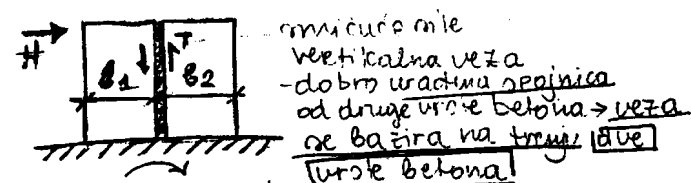 H
b1
T
b2
smičuće sile
vertikalna veza
-dobro urađena spojnica
od druge vrste betona → veza
se bazira na trenju dve
vrste betona